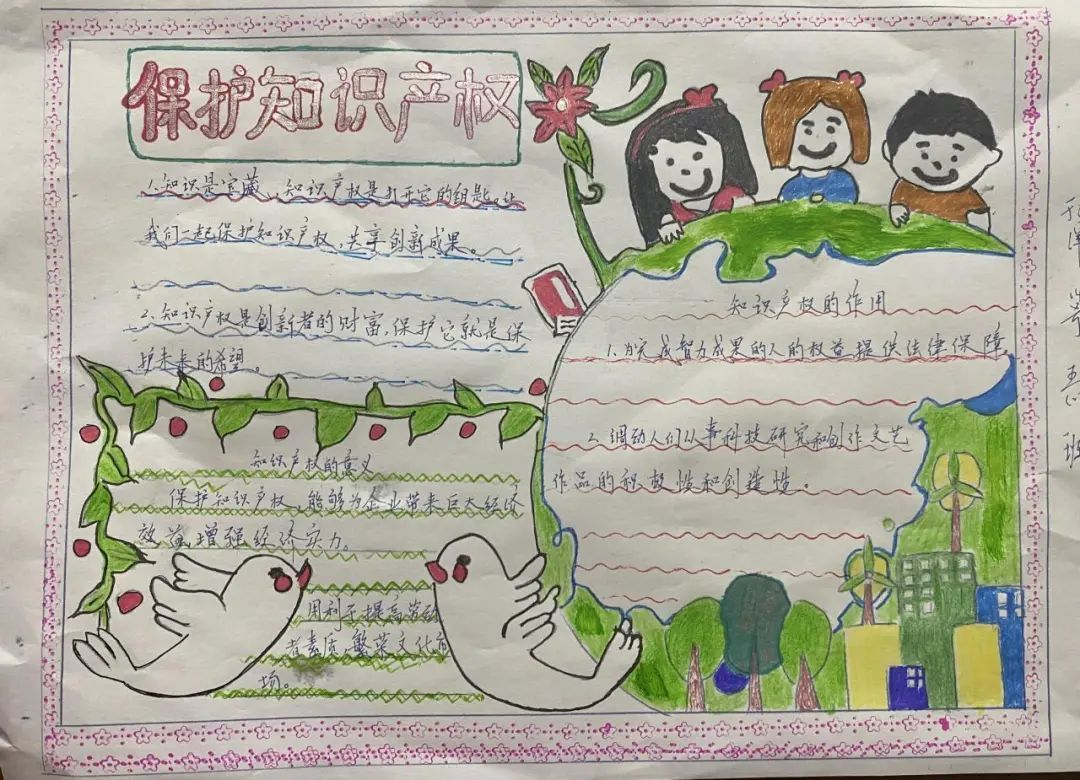 保护知识产权
1.知识是宝藏,知识产权是打开它的钥匙。让
我们一起保护知识产权,共享创新成果。
2.知识产权是创新者的财富,保护它就是保
护未来的希望。
知识产权的意义
保护知识产权,能够为企业带来巨大经济
效益增强经济实力。
用利于提高劳
者素质,繁荣文化
场。
知识产权的作用
1.为完成智力成果的人的权益提供法律保障,
2.调动人们从事科技研究和创作文艺
作品的积极性和创造性。
五
班